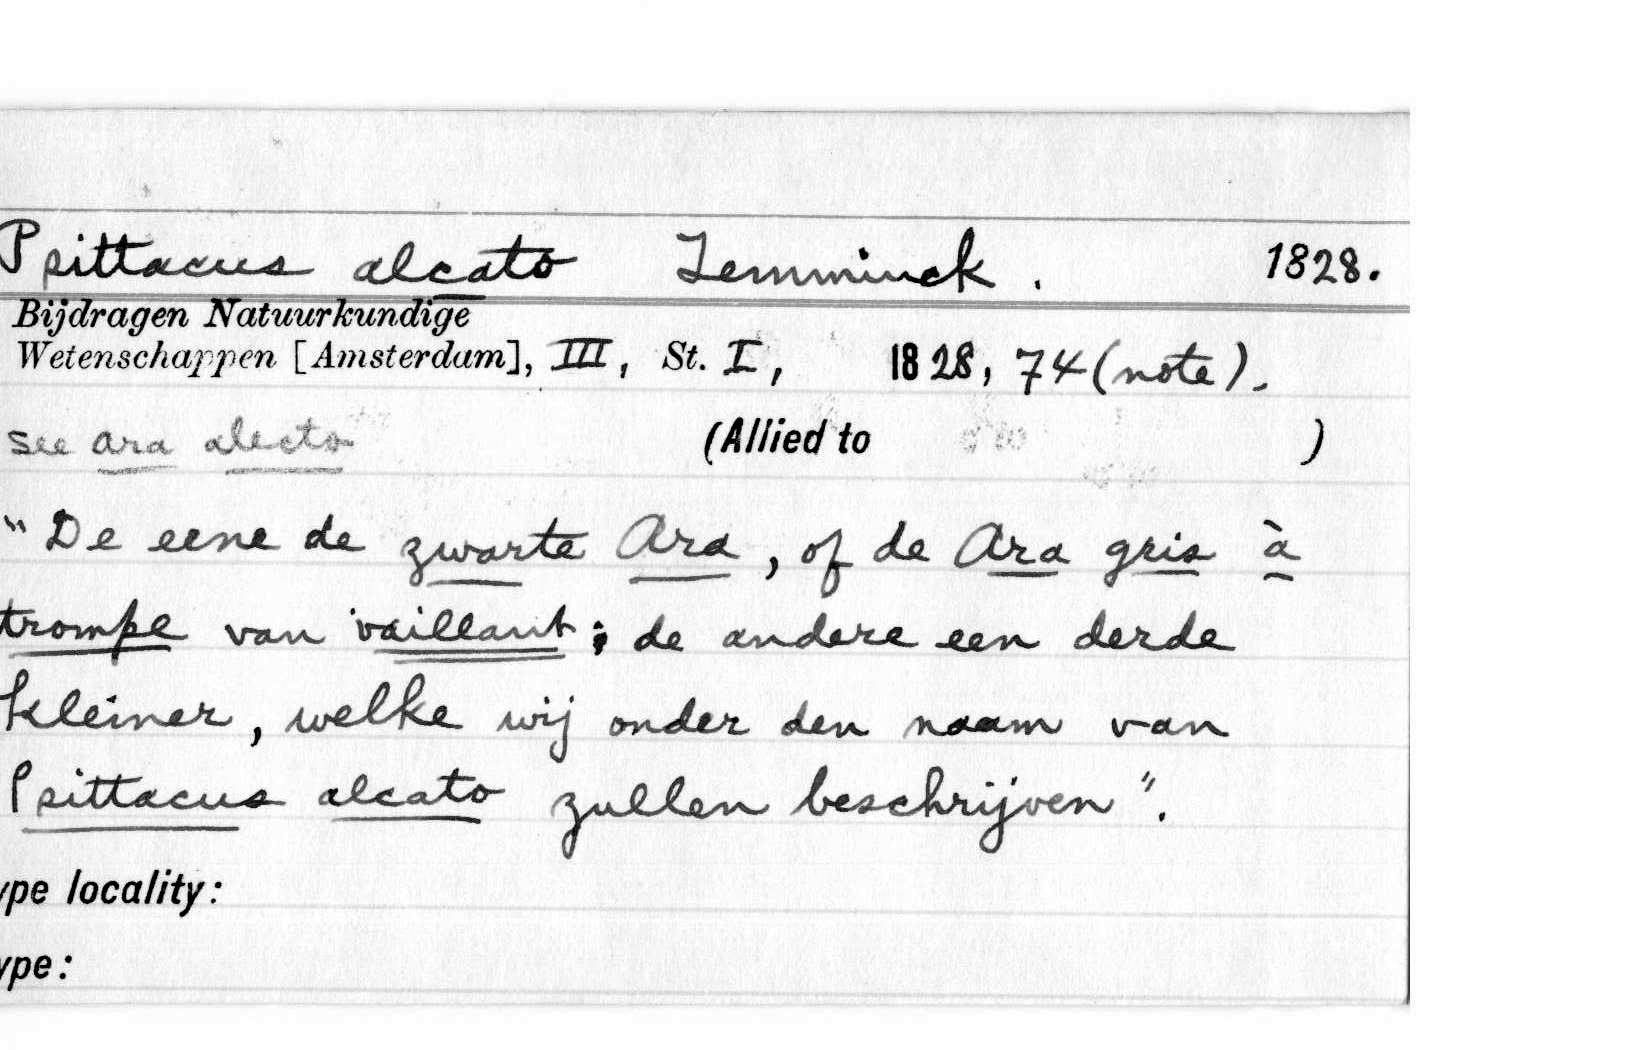 Psittacus alcato Temminck. 1828.
Bijdragen Natuurkundige
Wetenschappen [Amsterdam], III, St. I, 1828, 74 (note).
see Ara alecto (Allied to )
"De eene de zwarte Ara, of de Ara gris à
trompe van vaillant; de andere een derde
kleiner, welke wij onder den naam van
Psittacus alcato zullen beschrijven".
ype locality:
ype: